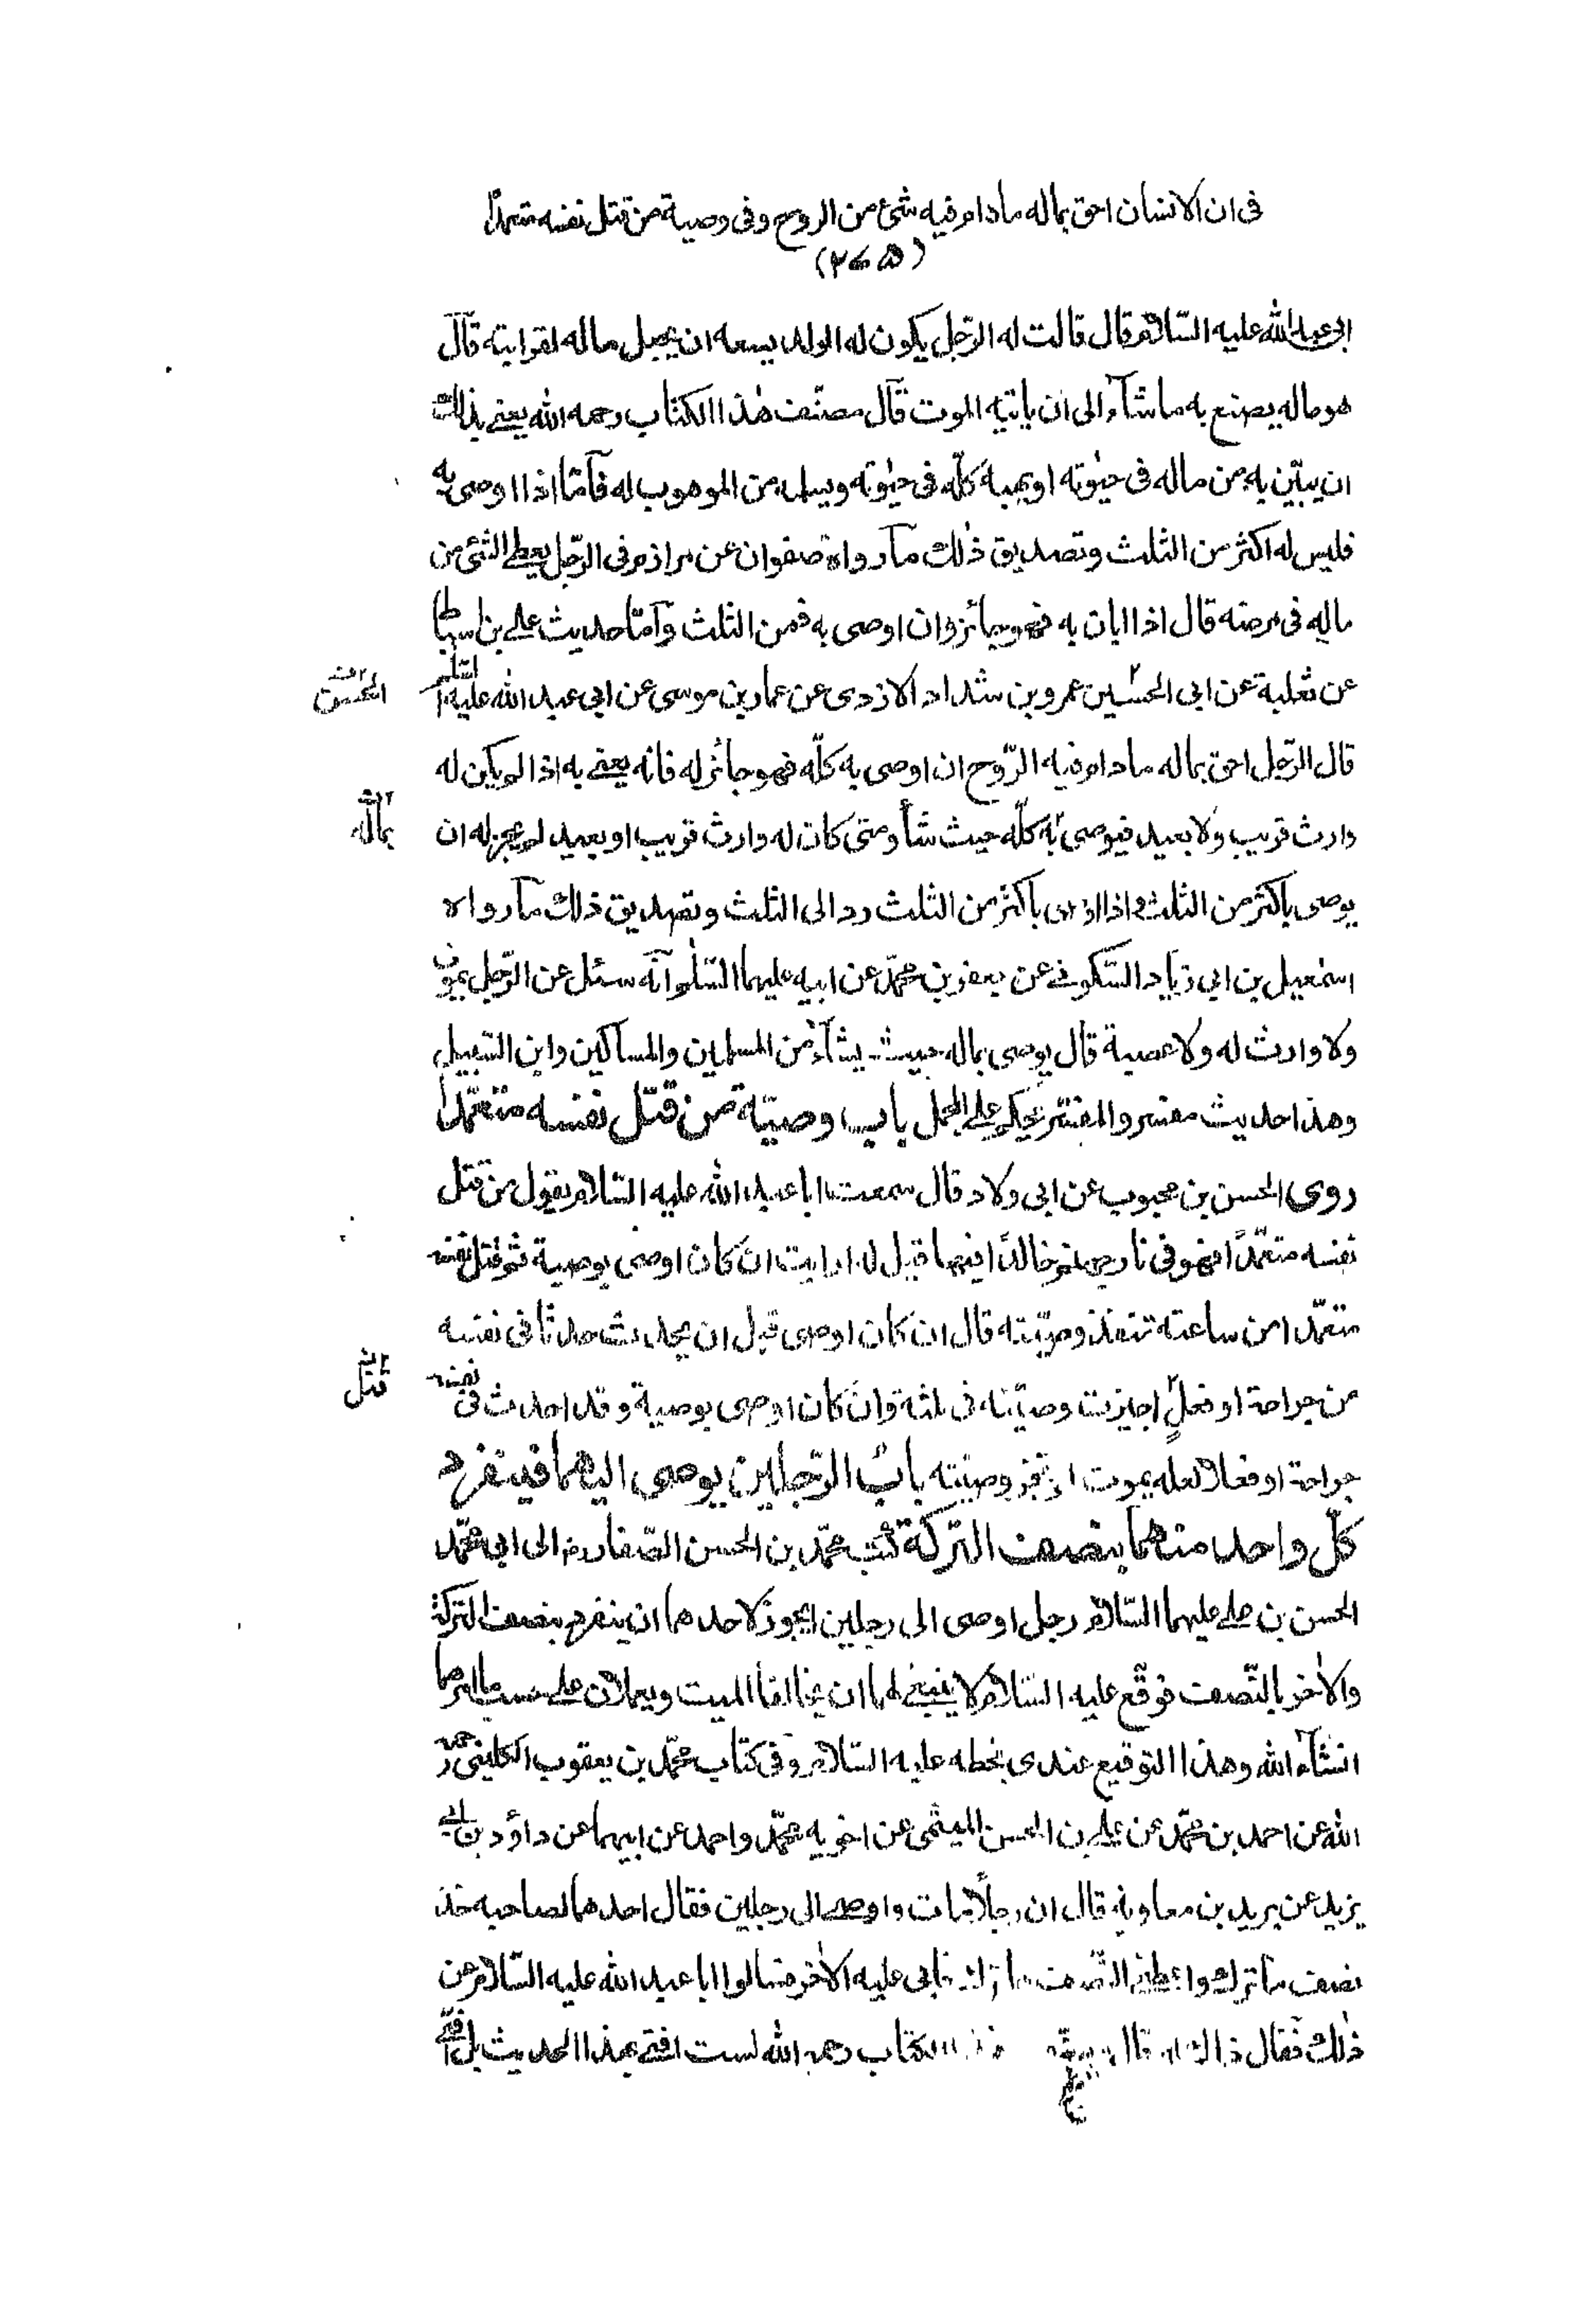 فى ان الانسان احق بماله مادام فيه شئ من الروح وفى وصية من قتل نفسه متعمدًا
(٢٧٥)
ابى عبد الله عليه السّلام قال قالت له الرّجل يكون له الولد يسعه ان يجعل ماله لقرابته قآل
هو ماله يصنع به ما شآء الى ان ياتيه الموت قآل مصنّف هٰذا الكتاب رحمه الله يعنى بذٰلك
ان يبيّن به من ماله فى حيٰوته او يهبه كلّه فى حيٰوته ويسلمه من الموهوب له فآمّا اذا اوصى به
فليس له اكثر من الثلث وتصديق ذٰلك مآ رواه صفوان عن مرازم فى الرّجل يعطى الشئ من
ماله فى مرضه قال اذا ابان به فهو جائز وان اوصى به فمن الثلث وآمّا حديث على بن اسباط
عن ثعلبة عن ابى الحسين عمرو بن شداد الازدى عن عمار بن موسى عن ابى عبد الله عليه السّلم
الحسن
قال الرّجل احق بماله مادام فيه الرّوح ان اوصى به كلّه فهو جائز له فانه يعنى به اذا لم يكن له
وارث قريب ولا بعيد فيوصى به كلّه حيث شآ ومتى كان له وارث قريب او بعيد لم يجز له ان
بماله
يوصى باكثر من الثلث واذا اوصى باكثر من الثلث رد الى الثلث وتصديق ذلك مآ رواه
اسمٰعيل بن ابى زياد السّكونى عن جعفر بن محمّد عن ابيه عليهما السّلٰم انّه سئل عن الرّجل يموت
ولا وارث له ولا عصبة قال يوصى بماله حيث يشآء من المسلمين والمساكين وابن السّبيل
وهذا حديث مفسر والمفسّر يحكم على المجمل باب وصيّة من قتل نفسه متعمّدًا
روى الحسن بن محبوب عن ابى ولاد قال سمعت ابا عبد الله عليه السّلام يقول من قتل
نفسه متعمّدًا فهو فى نار جهنم خالدًا فيها قيل له ارايت ان كان اوصى بوصية ثم قتل نفسه
متعمّدا من ساعته تنفذ وصيّته قال ان كان اوصى قبل ان يحدث حدثا فى نفسه
من جراحة او فعلٍ اجيزت وصيّته فى ثلثه وان كان اوصى بوصية وقد احدث فى نفسه
قتل
جراحة او فعلا لعله يموت لم تجز وصيّته بابُ الرّجلين يوصى اليهما فينفرد
كلّ واحد منهما بنصف التركة كتب محمّد بن الحسن الصّفار رض الى ابى محمّد
الحسن بن على عليهما السّلام رجل اوصى الى رجلين ايجوز لاحدهما ان ينفرد بنصف التركة
والاٰخر بالنّصف فوقّع عليه السّلام لا ينبغى لهما ان يخالفا الميت ويعملان على حسب ما امرهما
انشآء الله وهذا التوقيع عندى بخطه عليه السّلام وفى كتاب محمّد بن يعقوب الكلينى رحمه
الله عن احمد بن محمّد عن على بن الحسن الميثمى عن اخويه محمّد واحمد عن ابيهما عن داؤد بن ابى
يزيد عن بريد بن معاوية قال ان رجلًا مات واوصى الى رجلين فقال احدهما لصاحبه خذ
نصف ما ترك واعطنى النّصف مما ترك فابى عليه الاٰخر فسالوا ابا عبد الله عليه السّلام عن
ذٰلك فقال ذاك له قال الكتاب رحمه الله لست افتى بهذا الحديث بل افتى